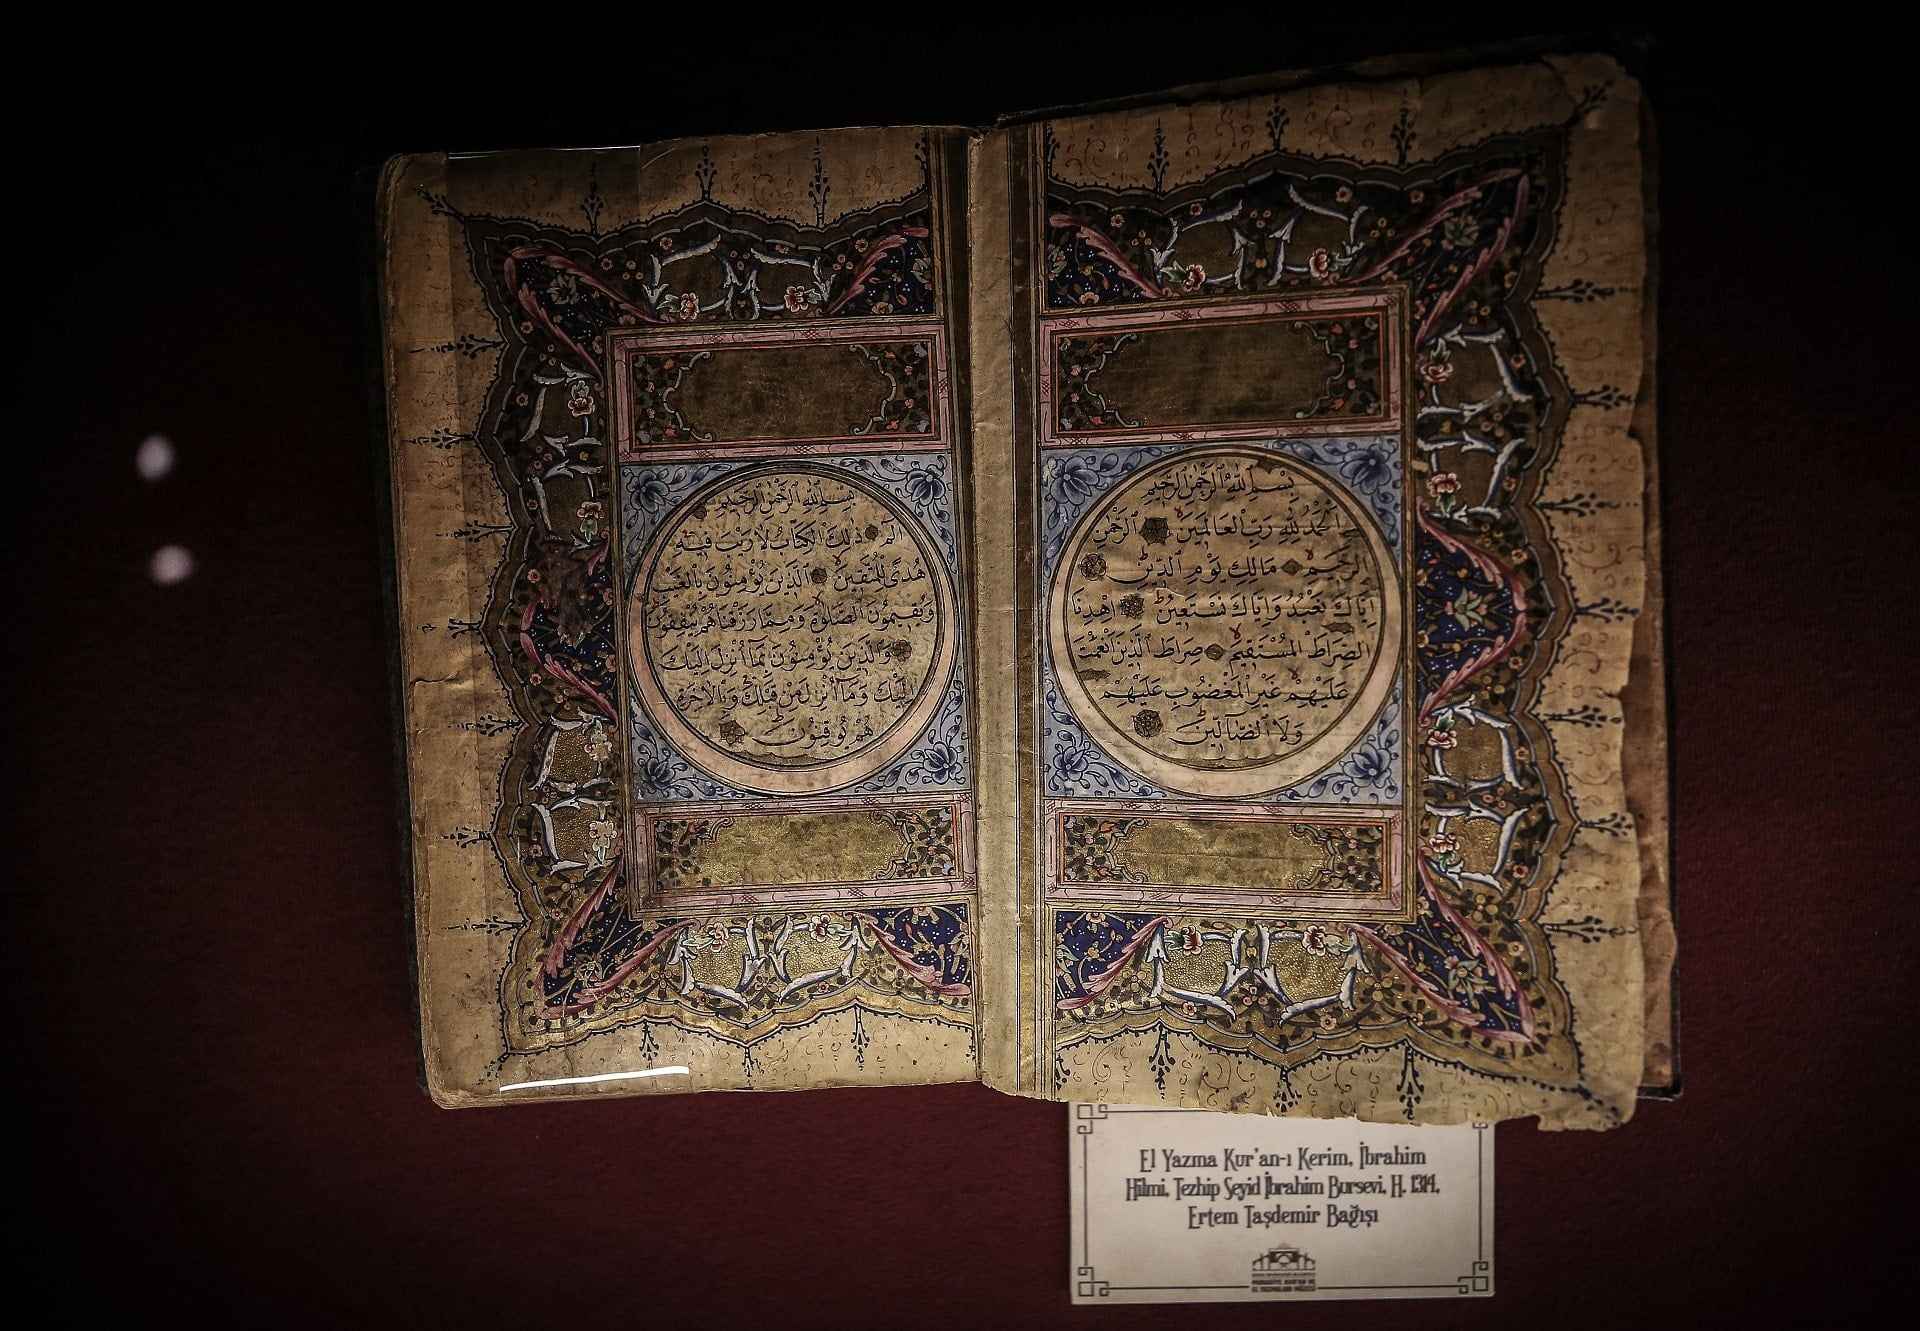 بِسْمِ اللّٰهِ الرَّحْمٰنِ الرَّحِيمِ
اَلْحَمْدُ لِلّٰهِ رَبِّ الْعَالَمِينَ الرَّحْمٰنِ
الرَّحِيمِ مَالِكِ يَوْمِ الدِّينِ
اِيَّاكَ نَعْبُدُ وَاِيَّاكَ نَسْتَعِينُ اِهْدِنَا
الصِّرَاطَ الْمُسْتَقِيمَ صِرَاطَ الَّذِينَ اَنْعَمْتَ
عَلَيْهِمْ غَيْرِ الْمَغْضُوبِ عَلَيْهِمْ
وَلَا الضَّٓالِّينَ
بِسْمِ اللّٰهِ الرَّحْمٰنِ الرَّحِيمِ
الٓمٓ ذٰلِكَ الْكِتَابُ لَا رَيْبَ فِيهِ
هُدًى لِلْمُتَّقِينَ اَلَّذِينَ يُؤْمِنُونَ بِالْغَيْبِ
وَيُقِيمُونَ الصَّلٰوةَ وَمِمَّا رَزَقْنَاهُمْ يُنْفِقُونَ
وَالَّذِينَ يُؤْمِنُونَ بِمَٓا اُنْزِلَ اِلَيْكَ
اِلَيْكَ وَمَٓا اُنْزِلَ مِنْ قَبْلِكَ وَبِالْاٰخِرَةِ
هُمْ يُوقِنُونَ
El Yazma Kur'an-ı Kerim, İbrahim
Hilmi, Tezhip Seyid İbrahim Bursevi, H. 1314,
Ertem Taşdemir Bağışı